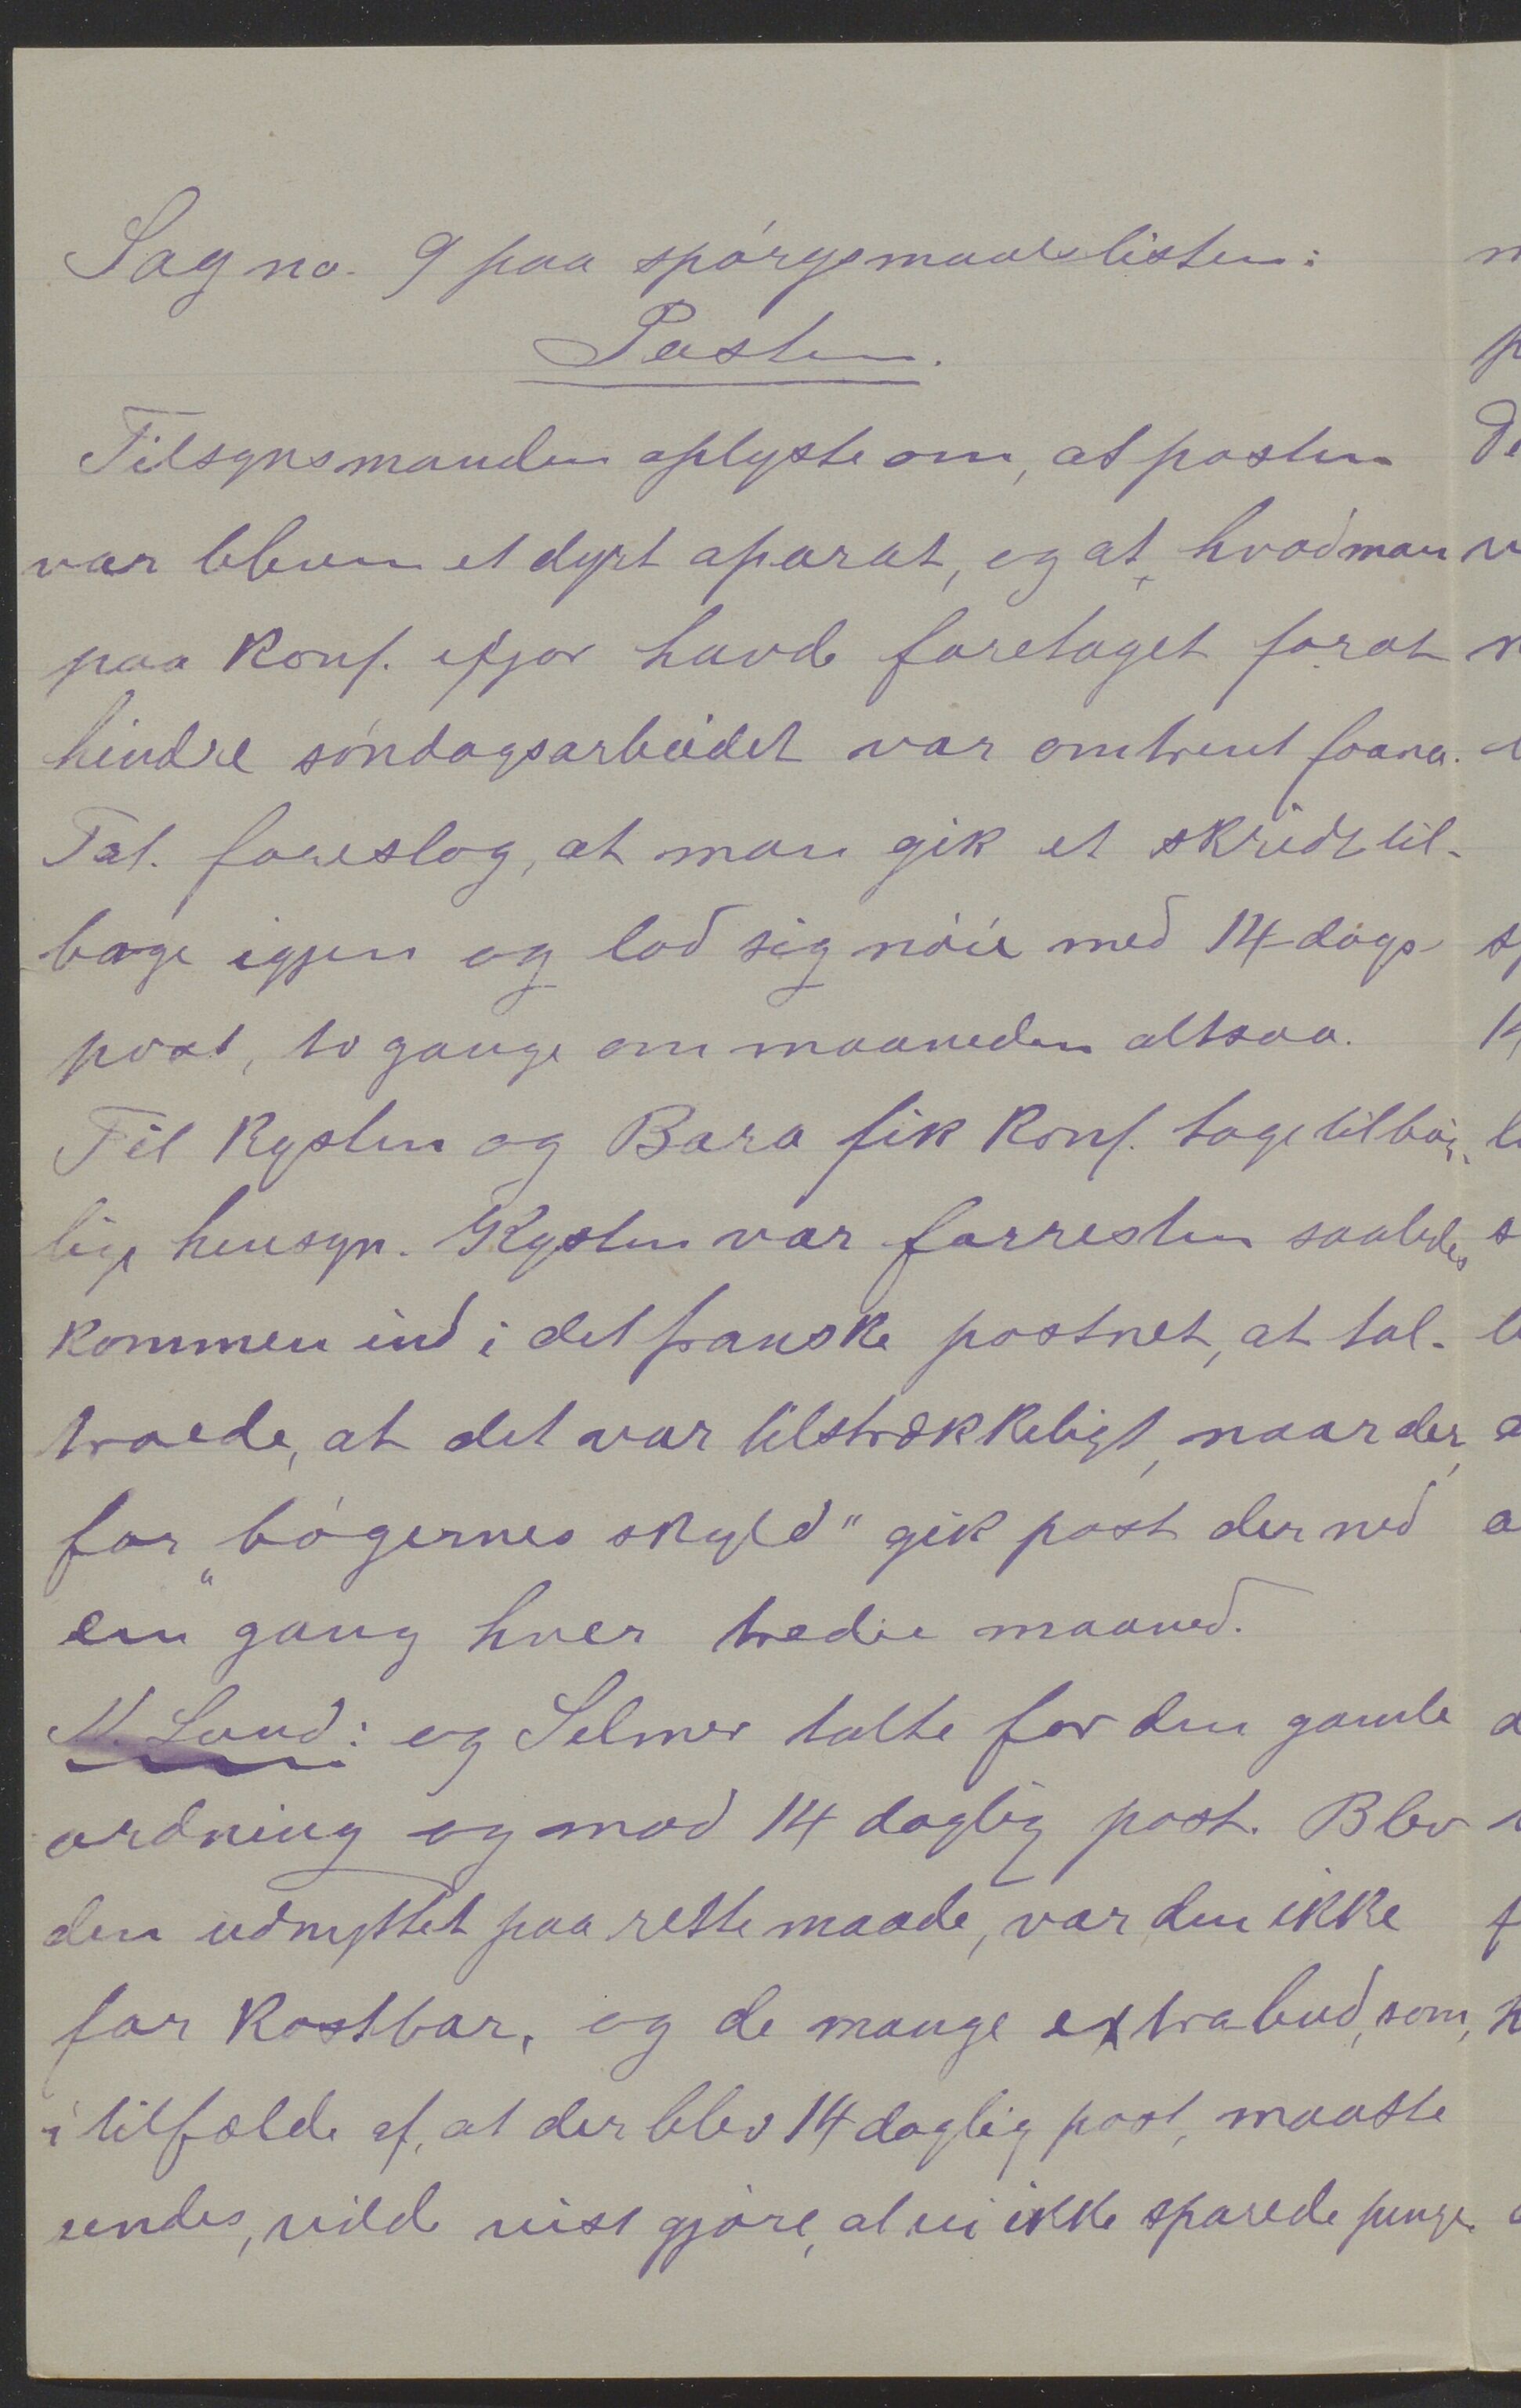 Sag no. 9 paa spórgsmaalslisten:
Posten.
Tilsynsmanden oplyste om, at posten
var bleven et dyrt aparat, og at hvad man
paa Konf. ifjor havde foretaget forat
hindre söndagsarbeidet var omtrent foana.
Tal. foreslog, at man gik et skridt til-
bage igjen og lod sig nóie med 14 dags
post, to gange om maaneden altsaa.
Til Kysten og Bara fik Konf. tage tilbór-
lige hensyn. Kysten var forresten saaledes
kommen ind i det franske postnet, at tal.
troede, at det var tilstrækkeligt, naar der
for "bógernes skyld" gik post der ned
en gang hver tredie maaned.
M. Lund: og Selmer talte for den gamle
ordning og mod 14 daglig post. Blev
den udnyttet paa rette maade, var den ikke
for kostbar, og de mange extrabud, som,
i tilfælde af, at der blev 14 daglig post, maatte
sendes, vilde vist gjóre, at vi ikke sparede penge